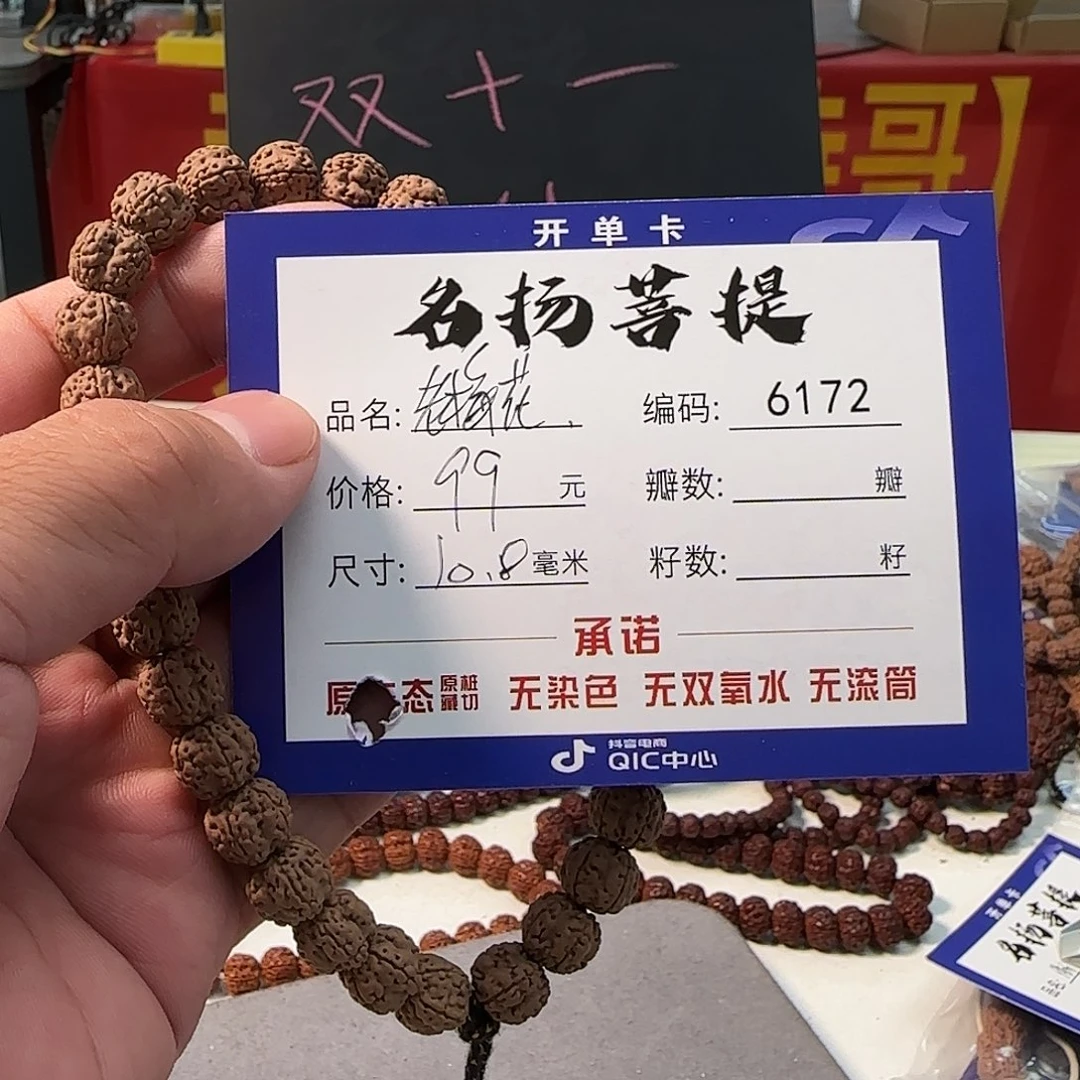 双十一
哥】
开单卡
名扬菩提
品名: 老梅花 编码: 6172
价格: 99 元 瓣数: 瓣
尺寸: 10.8 毫米 籽数: 籽
承诺
原态 原桩藏切 无染色 无双氧水 无滚筒
抖音电商
QIC中心
开单卡
名扬菩提